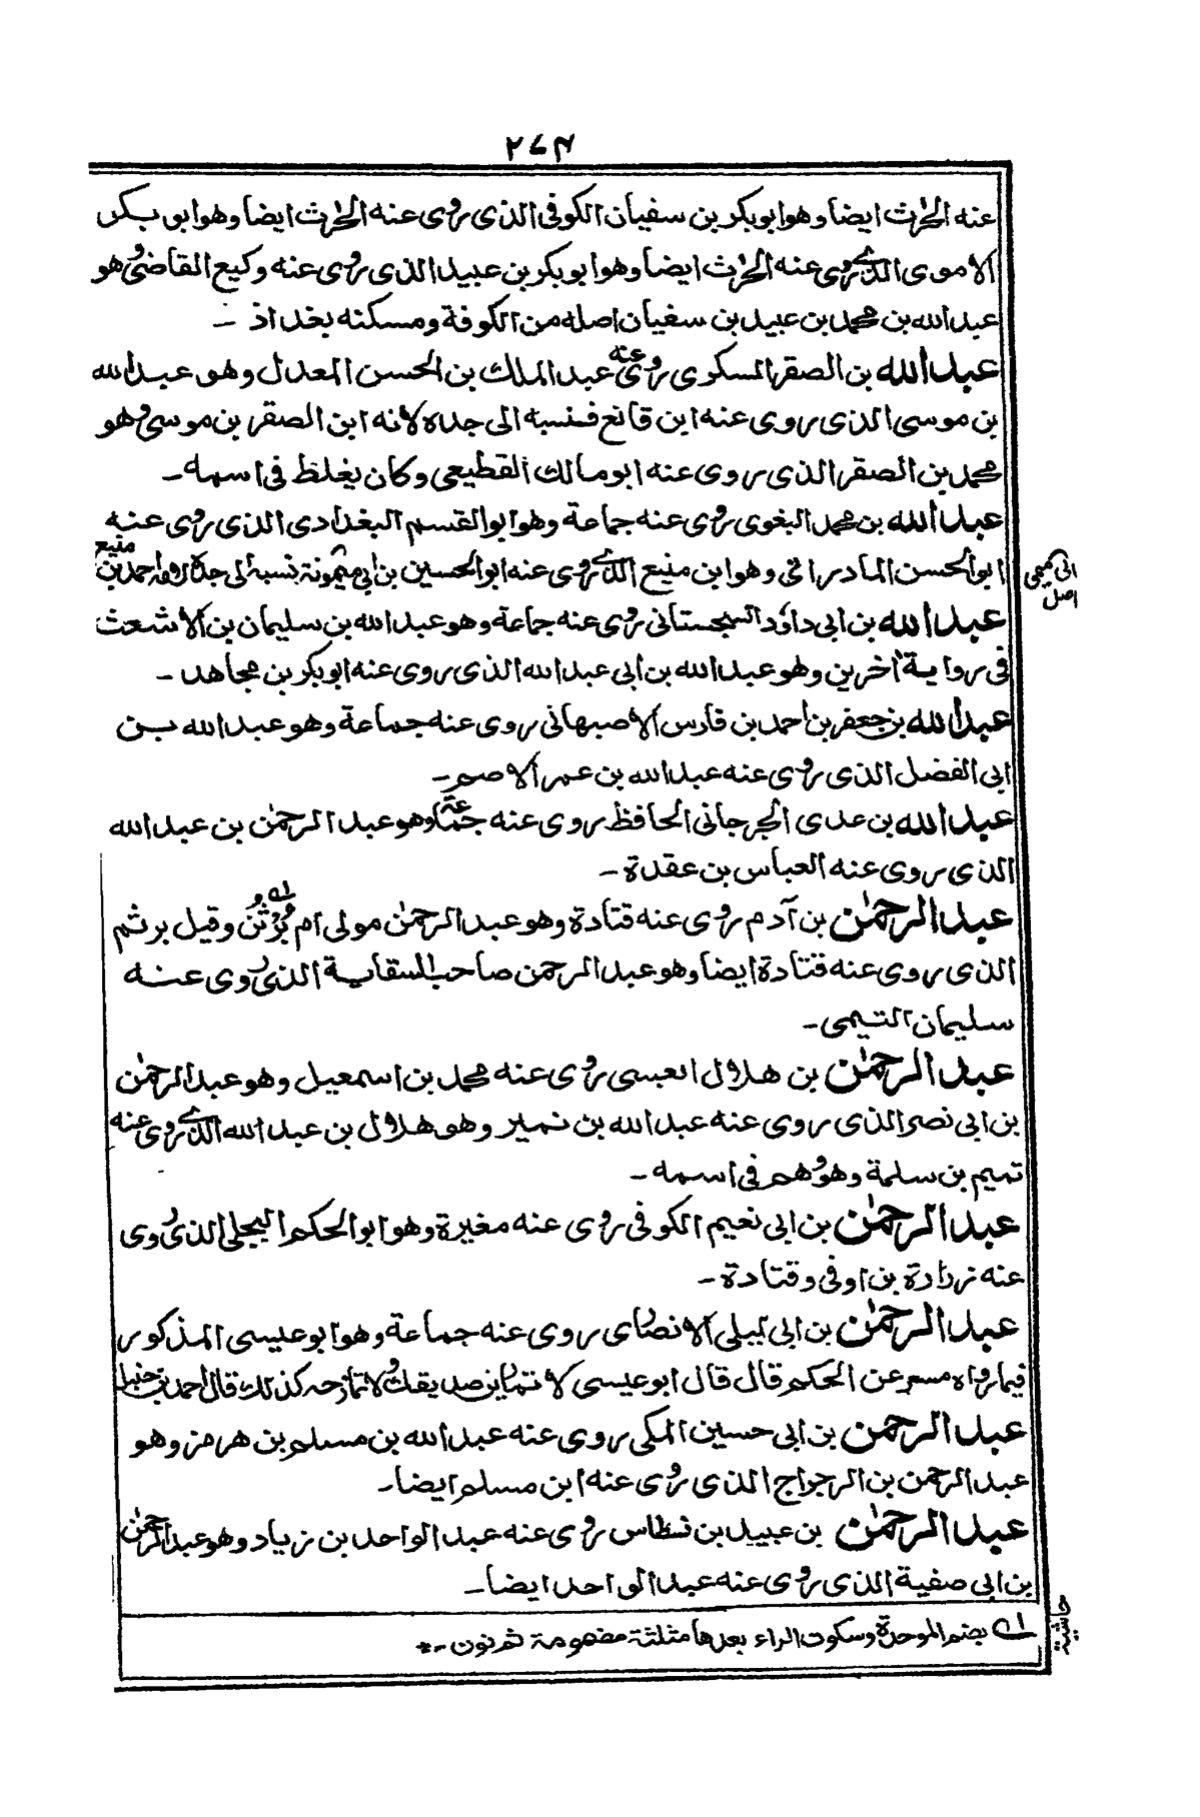 ٢٧٤
عنه الحٰرث ايضا وهو ابو بكر بن سفيان الكوفى الذى روى عنه الحٰرث ايضا وهو ابو بكر
الاموى الذے روى عنه الحٰرث ايضا وهو ابو بكر بن عبيد الذى روى عنه وكيع القاضى وهو
عبد الله بن محمد بن عبيد بن سفيان اصله من الكوفة ومسكنه بغداذ ـ
عبد الله بن الصقر السكرى روى عنه عبد الملك بن الحسن المعدل وهو عبد الله
بن موسى الذى روى عنه ابن قانع فنسبه الى جده لانه ابن الصقر بن موسى وهو
محمد بن الصقر الذى روى عنه ابو مالك القطيعى وكان يغلظ فى اسمه ـ
عبد الله بن محمد البغوى روى عنه جماعة وهو ابو القسم البغدادى الذى روى عنه
ابو الحسن المادرائى وهو ابن منيع الذے روى عنه ابو الحسين بن ابى ميمونة نسبة الى جده لامه احمد بن منيع
ابى سميعى
اصل
عبد الله بن ابى داؤد السجستانى روى عنه جماعة وهو عبد الله بن سليمان بن الاشعث
فى رواية اخرين وهو عبد الله بن ابى عبد الله الذى روى عنه ابو بكر بن مجاهد ـ
عبد الله بن جعفر بن احمد بن فارس الاصبهانى روى عنه جماعة وهو عبد الله بن
ابى الفضل الذى روى عنه عبد الله بن عمر الاصم ـ
عبد الله بن عدى الجرجانى الحافظ روى عنه جماعة وهو عبد الرحمٰن بن عبد الله
الذى روى عنه العباس بن عقدة ـ
عبد الرحمٰن بن آدم روى عنه قتادة وهو عبد الرحمٰن مولى ام بُرْثُن وقيل برثم
الذى روى عنه قتادة ايضا وهو عبد الرحمن صاحب السقاية الذى روى عنه
سليمان التيمى ـ
عبد الرحمٰن بن هلال العبسى روى عنه محمد بن اسمعيل وهو عبد الرحمٰن
بن ابى نصر الذى روى عنه عبد الله بن نمير وهو هلال بن عبد الله الذے روى عنه
تميم بن سلمة وهو وهم فى اسمه ـ
عبد الرحمٰن بن ابى نعيم الكوفى روى عنه مغيرة وهو ابو الحكم البجلى الذى روى
عنه زرارة بن اوفى وقتادة ـ
عبد الرحمٰن بن ابى ليلى الانصارى روى عنه جماعة وهو ابو عيسى المذكور
فيما رواه مسعر عن الحكم قال قال ابو عيسى لا تمارين صديقك ولا تمازحه كذلك قال احمد بن حنبل
عبد الرحمن بن ابى حسين المكى روى عنه عبد الله بن مسلم بن هرمز وهو
عبد الرحمن بن الرجراج الذى روى عنه ابن مسلم ايضا ـ
عبد الرحمٰن بن عبيد بن نسطاس روى عنه عبد الواحد بن زياد وهو عبد الرحمٰن
بن ابى صفية الذى روى عنه عبد الواحد ايضا ـ
لـه بضم الموحدة وسكون الراء بعدها مثلثة مضمومة ثم نون ـ *
حاشية